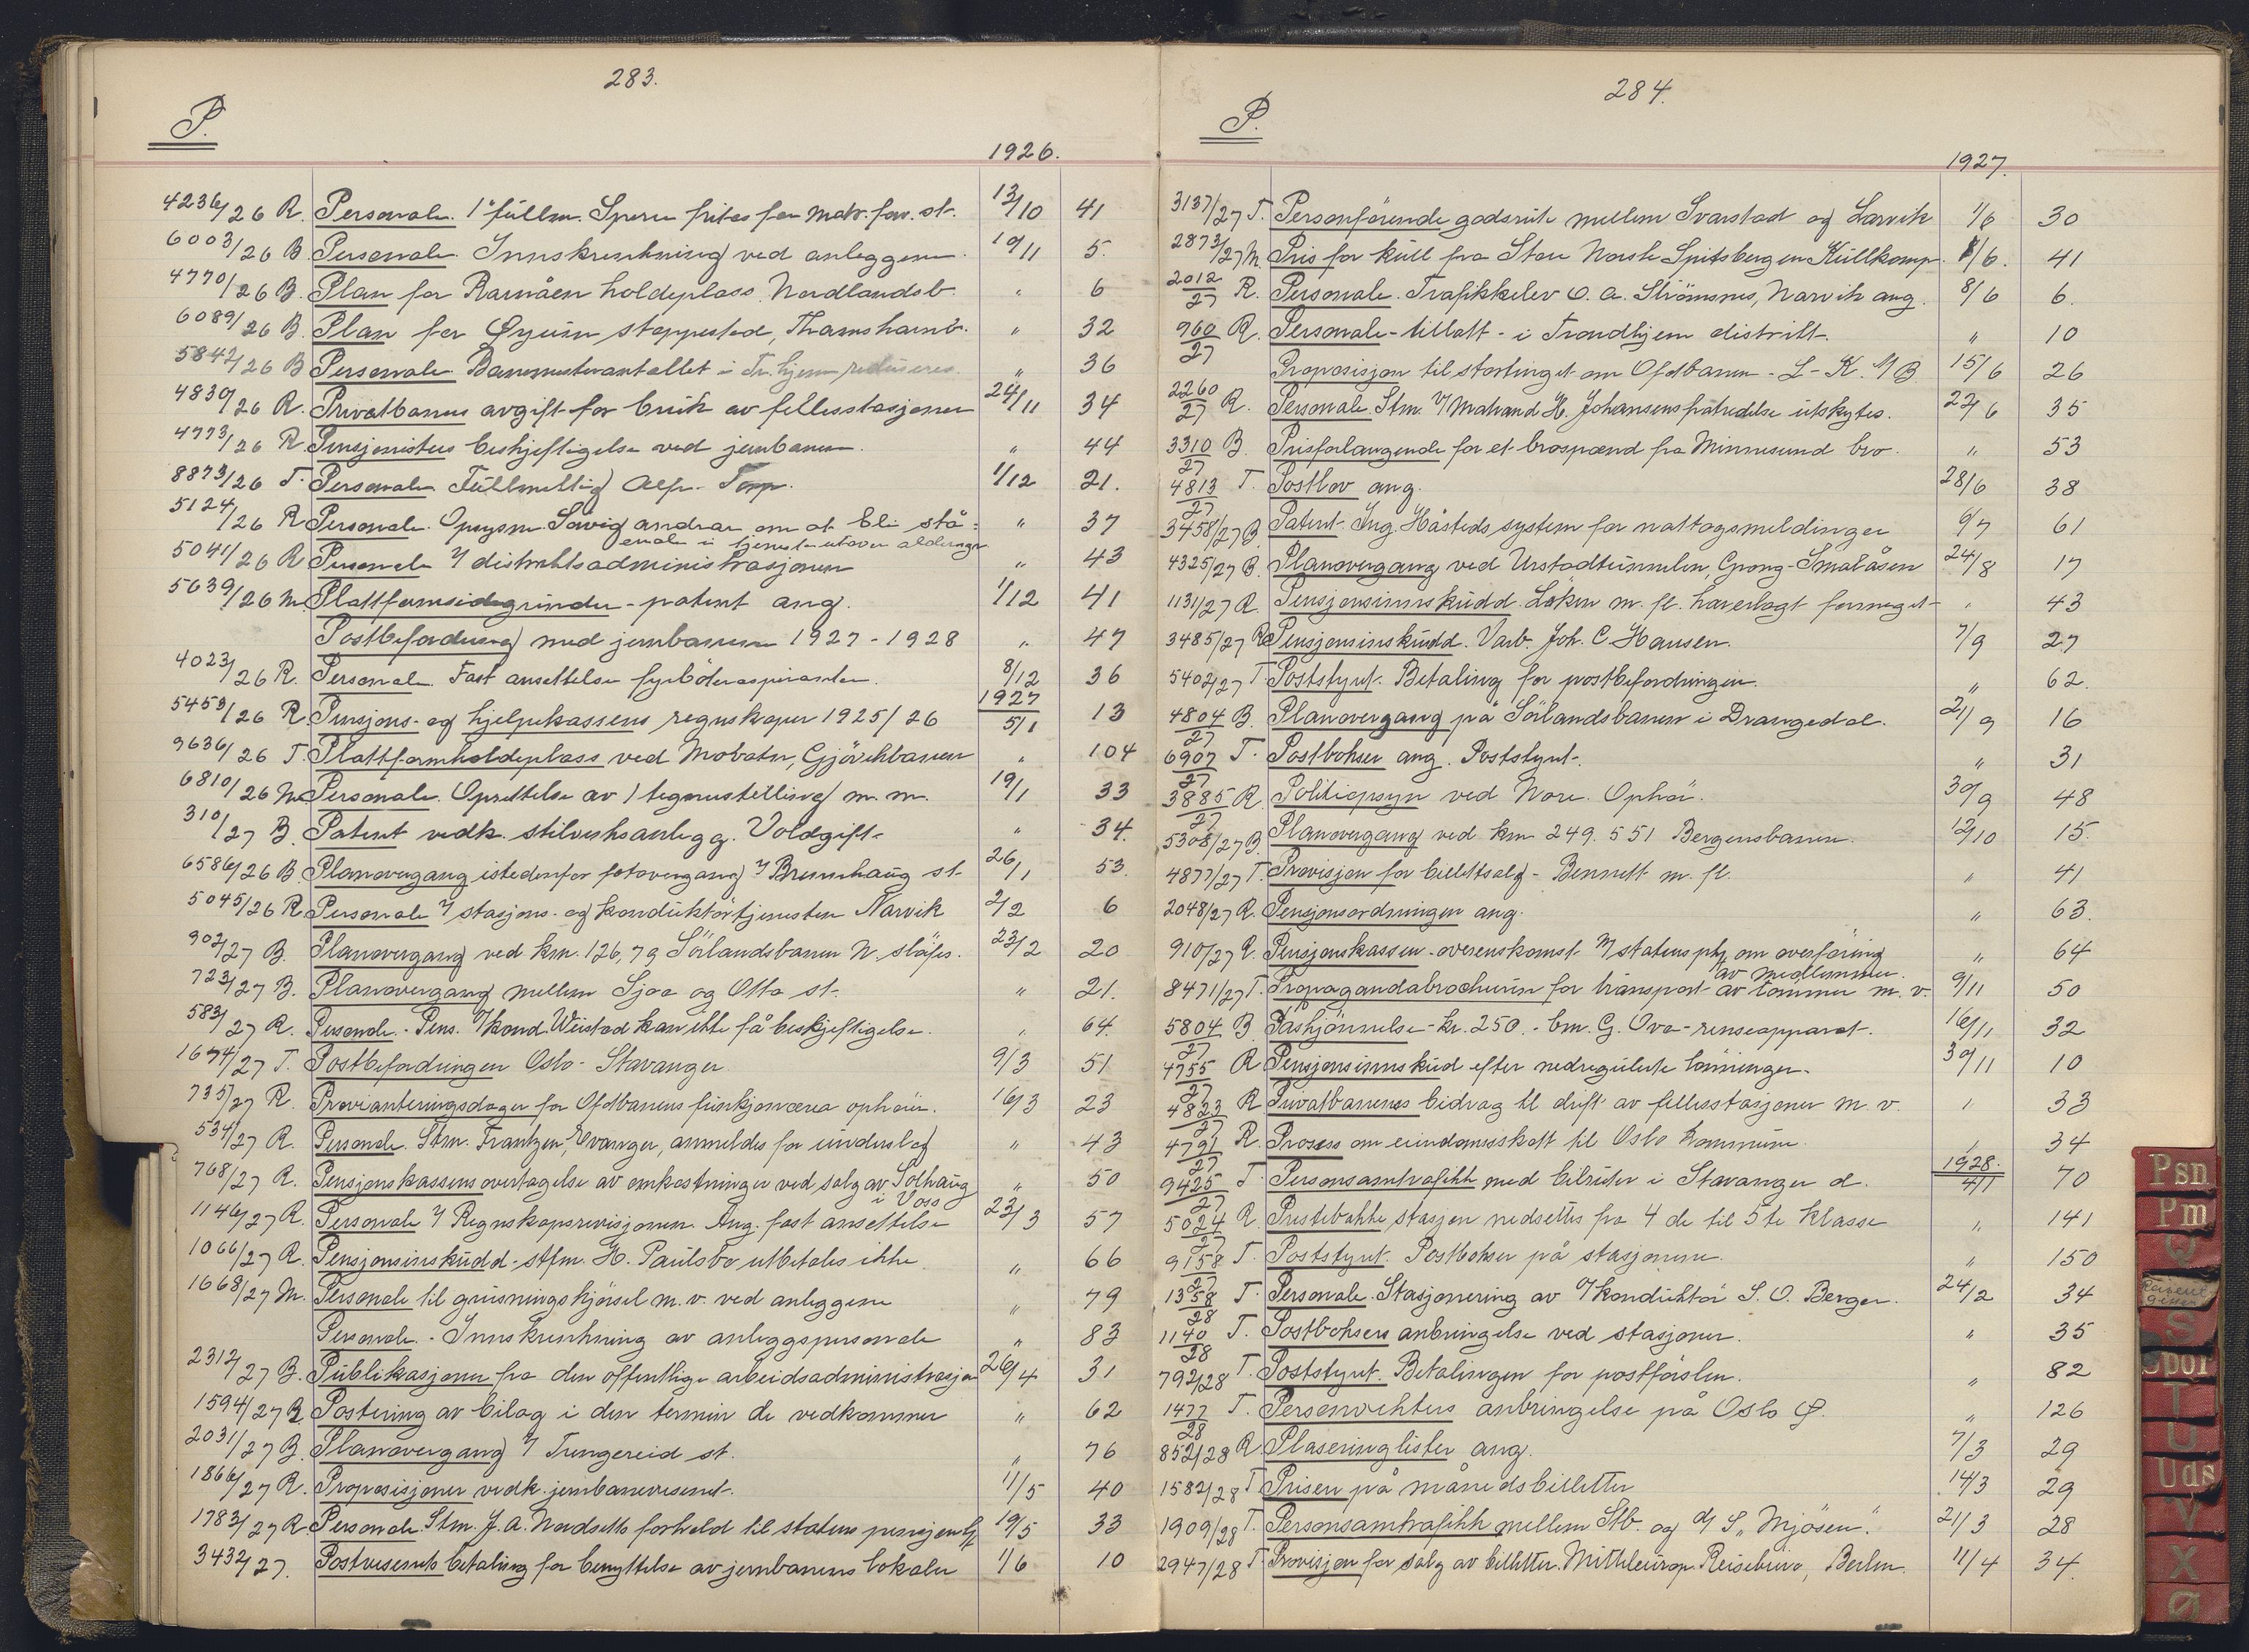 283.
P.
1926.
4236/26 R. Personale. 1ste fullm. Speru fritas for Matr. forv. st. 13/10 41
6003/26 B. Personale. Innskrenkning ved anleggene. 10/11 5.
4770/26 B. Plan for Ramåen holdeplass, Nordlandsb. " 6
6089/26 B. Plan for Øyum stoppested, Thamshamnb. " 32
5842/26 B Personale Banemesterantallet i Tr.hjem reduseres. " 36
4830/26 R. Privatbaners avgift for bruk av fellesstasjoner 24/11 34
4773/26 R Pensjonisters beskjeftigelse ved jernbanen. " 44
8873/26 T. Personale Fullmektig Alfr. Torp. 1/12 21.
5124/26 R Personale. Opsynsm. Søvig andrar om at bli stå= " 37
ende i tjeneste utover aldersgr.
5041/26 R Personale v/ distriktsadministrasjonen " 43
5639/26 M. Plattformsidegrinder - patent ang. 1/12 41
Postbefordring med jernbanene 1927-1928 " 47
4023/26 R. Personale. Fast ansettelse fyrböteraspiranter. 8/12 36
1927
5453/26 R Pensjons- og hjelpekassens regnskaper 1925/26 5/1 13
9636/26 T. Plattformholdeplass ved Mobatn, Gjövikbanen " 104
6810/26 M. Personale. Oprettelse av 1 tegnerstilling m. m. 19/1 33
310/27 B. Patent vedk. stilverksanlegg. Voldgift " 34.
6586/26 B. Planovergang istedenfor fotovergang v/ Brumhaug st. 26/1 53.
5045/26 R Personale v/ stasjons- og konduktörtjenesten Narvik 2/2 6
902/27 B. Planovergang ved km. 126,79 Sörlandsbanen N. slöifes. 23/2 20
723/27 B. Planovergang mellem Sjoa og Otta st. " 21.
583/27 R. Personale. - Pens. v/kond. Weistad kan ikke få beskjeftigelse. " 64.
1674/27 T. Postbefordringen Oslo - Stavanger 9/3 51
735/27 R. Provianteringsdager for Ofotbanens funksjonærer ophör. 16/3 23
534/27 R. Personale. Stm. Frantzen, Evanger, anmeldes for underslag " 43
768/27 R. Pensjonskassens overtagelse av omkostninger ved salg av Solhaug " 50
i Voss
1146/27 R. Personale v/ Regnskapsrevisjonen. Ang. fast ansettelse 23/3 57
1066/27 R. Pensjonsinskudd - stfm. H. Paulsbo utbetales ikke " 66
1668/27 M. Personale til grusningskjörsel m. v. ved anleggene " 79
Personale. - Innskrenkning av anleggspersonale " 83
2312/27 B. Publikasjoner fra den offentlige arbeidsadministrasjon 26/4 31
1594/27 R Postering av bilag i den termin de vedkommer " 62
2031/27 B. Planovergang v/ Tungereid st. " 76
1866/27 R. Proposisjoner vedk. jernbanevesenet. 11/5 40
1783/27 R Personale. Stm. J. A. Nordseths forhold til statens pensjonskasse 19/5 33
3432/27. Postvesenets betaling for benyttelse av jernbanens lokaler 1/6 10
284.
P.
1927.
3137/27 T. Personförende godsrute mellem Svarstad og Larvik 1/6 30
2873/27 M. Pris for kull fra Store Norske Spitsbergen Kullkomp. 1/6. 41
2012/27 R. Personale. Trafikkelev O. A. Strömsnes, Narvik ang. 8/6 6.
960/27 R. Personale - tillatt - i Trondhjem distrikt. " 10
Proposisjon til stortinget om Ofotbanen - L-K. A/B 15/6 26
2260/27 R. Personale Stm. v/ Matrand H. Johansens fratredelse utskytes. 22/6 35
3310/27 B. Prisforlangende for et brospænd fra Minnesund bro. " 53
4813/27 T. Postlov ang. 28/6 38
3458/27 B Patent - Ing. Håsteds system for nattogsmeldinger 6/7 61
4325/27 B. Planovergang ved Urstadtunnelen, Grong-Smalåsen 24/8 17
1131/27 R. Pensjonsinnskudd. Löken m. fl. har erlagt formeget " 43
3485/27 R Pensjonsinskudd. Varb. Joh. C. Hansen. 7/9 27
5402/27 T Poststyret. Betaling for postbefordringen. " 62.
4804/27 B. Planovergang på Sörlandsbanen i Drangedal. 21/9 16
6907/27 T. Postbokser ang. Poststyret. " 31
3885/27 R. Politiopsyn ved Nore. Ophör. 30/9 48
5308/27 B. Planovergang ved km 249.551 Bergensbanen. 12/10 15.
4877/27 T. Provisjon for billettsalg - Bennett m. fl. " 41
2048/27 R. Pensjonsordningen ang. " 63.
910/27 R. Pensjonskassen - overenskomst m/ statens pkj. om overföring " 64
av medlemmer.
8471/27 T. Propagandabrochuren for transport av tömmer m. v. 9/11 50
5804/27 B Påskjönnelse - kr. 250. - bm. G. Ova - renseapparat. 16/11 32
4755/27 R Pensjonsinnskud efter nedregulerte lönninger. 30/11 10
4823/27 R Privatbanenes bidrag til drift av fellesstasjoner m. v. " 33
4791/27 R. Prosess om eiendomsskatt til Oslo kommune. " 34
1928.
9425/27 T. Personsamtrafikk med bilruter i Stavanger d. 4/1 70
5024/27 R. Prestebakke stasjon nedsettes fra 4 de til 5 te klasse " 141
9158/27 T. Poststyret. Postbokser på stasjonene. " 150
1358/28 T. Personale. Stasjonering av o/konduktör S. O. Berger. 24/2 34
1140/28 T. Postboksers anbringelse ved stasjoner. " 35
792/28 T Poststyret. Betalingen for postförslen. " 82
1477/28 T. Personvekters anbringelse på Oslo Ø. " 126
852/28 R Plaseringlister ang. 7/3 29
1582/28 T Prisen på månedsbilletter 14/3 29
1909/28 T. Personsamtrafikk mellem Stb. og D/S "Mjösen". 21/3 28
2947/28 T Provisjon for salg av billetter. Mitteleurop. Reisebüro, Berlin. 11/4 34.
Psn
Pm
Q
S
T
U
Uds
V
X
Ø